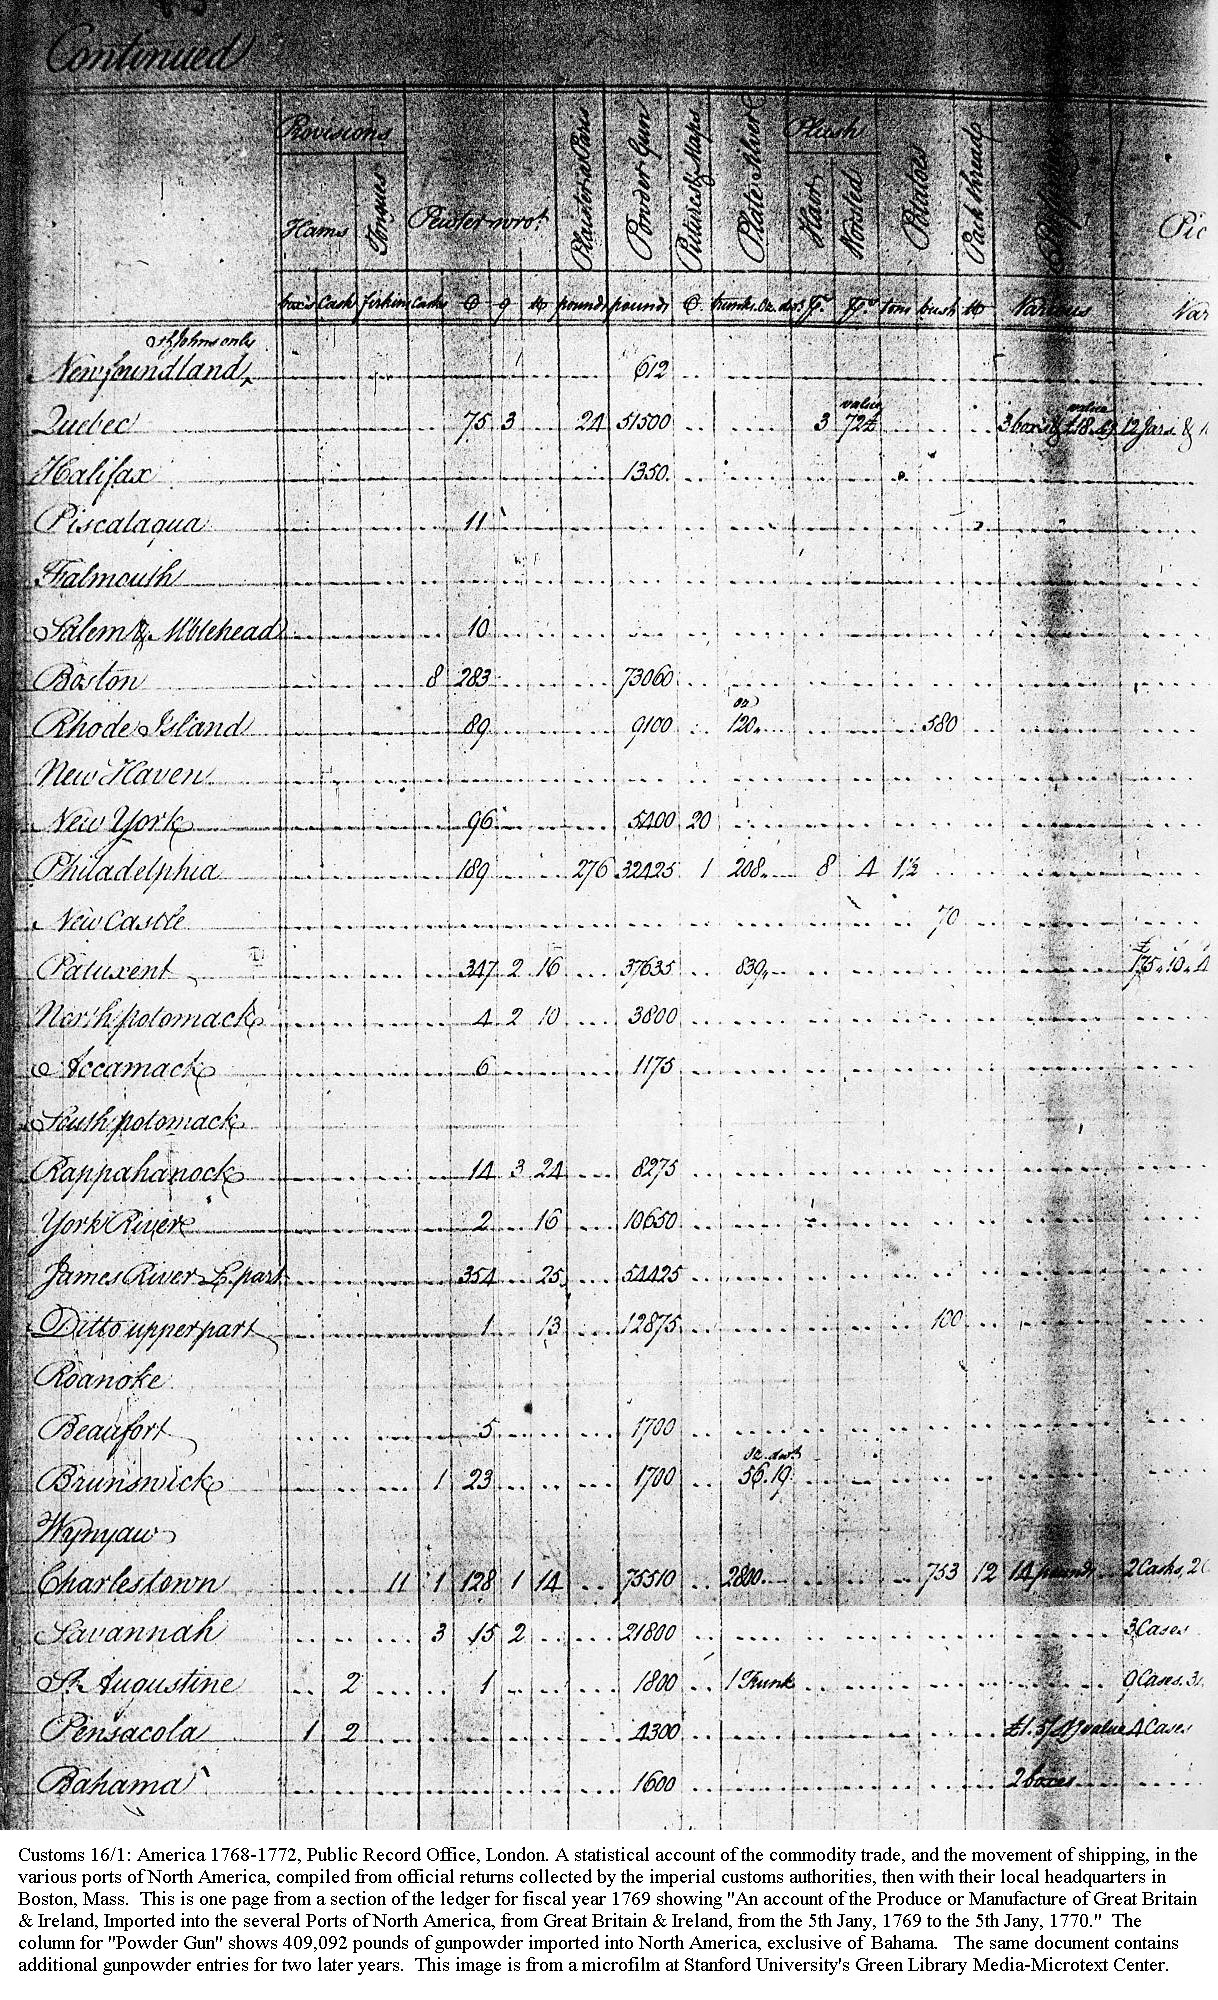 Continued
Provisions Plush
Hams Tongues Pewter wrot. Plaister a Paris Powder Gun Pictures & Maps Plate Silver Hair Worsted Potatoes Pack thread Pic
boxes Cask firkins casks C q lb pounds pounds C trunks. oz. dwt. ps. ps. tons bush lb Various Var
St. Johns only
Newfoundland 612
value value
Quebec 75 3 24 51500 3 72£ 3 boxes & £18 12 Jars &
Halifax 1350
Piscataqua 11
Falmouth
Salem & M'blehead 10
Boston 8 283 73060
oz
Rhode Island 89 9100 120 580
New Haven
New York 96 5400 20
Philadelphia 189 276 32425 1 208 8 4 1½
New Castle 70
£
Patuxent 347 2 16 37635 839 175 .. 10 .. 4
North potomack 4 2 10 3800
Accamack 6 1175
South potomack
Rappahanock 14 3 24 8275
York River 2 16 10650
James River L. part 354 25 54425
Ditto upper part 1 13 12875 100
Roanoke
Beaufort 5 1700
oz. dwt
Brunswick 1 23 1700 56. 19
Wynyaw
Charlestown 11 1 128 1 14 75510 2800 753 12 14 pounds 2 Casks, 2
Savannah 3 15 2 21800 3 Cases
St. Augustine 2 1 1800 1 Trunk 9 Cases. 3
Pensacola 1 2 4300 value 4 Cases
Bahama 1600 2 boxes
Customs 16/1: America 1768-1772, Public Record Office, London. A statistical account of the commodity trade, and the movement of shipping, in the
various ports of North America, compiled from official returns collected by the imperial customs authorities, then with their local headquarters in
Boston, Mass. This is one page from a section of the ledger for fiscal year 1769 showing "An account of the Produce or Manufacture of Great Britain
& Ireland, Imported into the several Ports of North America, from Great Britain & Ireland, from the 5th Jany, 1769 to the 5th Jany, 1770." The
column for "Powder Gun" shows 409,092 pounds of gunpowder imported into North America, exclusive of Bahama. The same document contains
additional gunpowder entries for two later years. This image is from a microfilm at Stanford University's Green Library Media-Microtext Center.